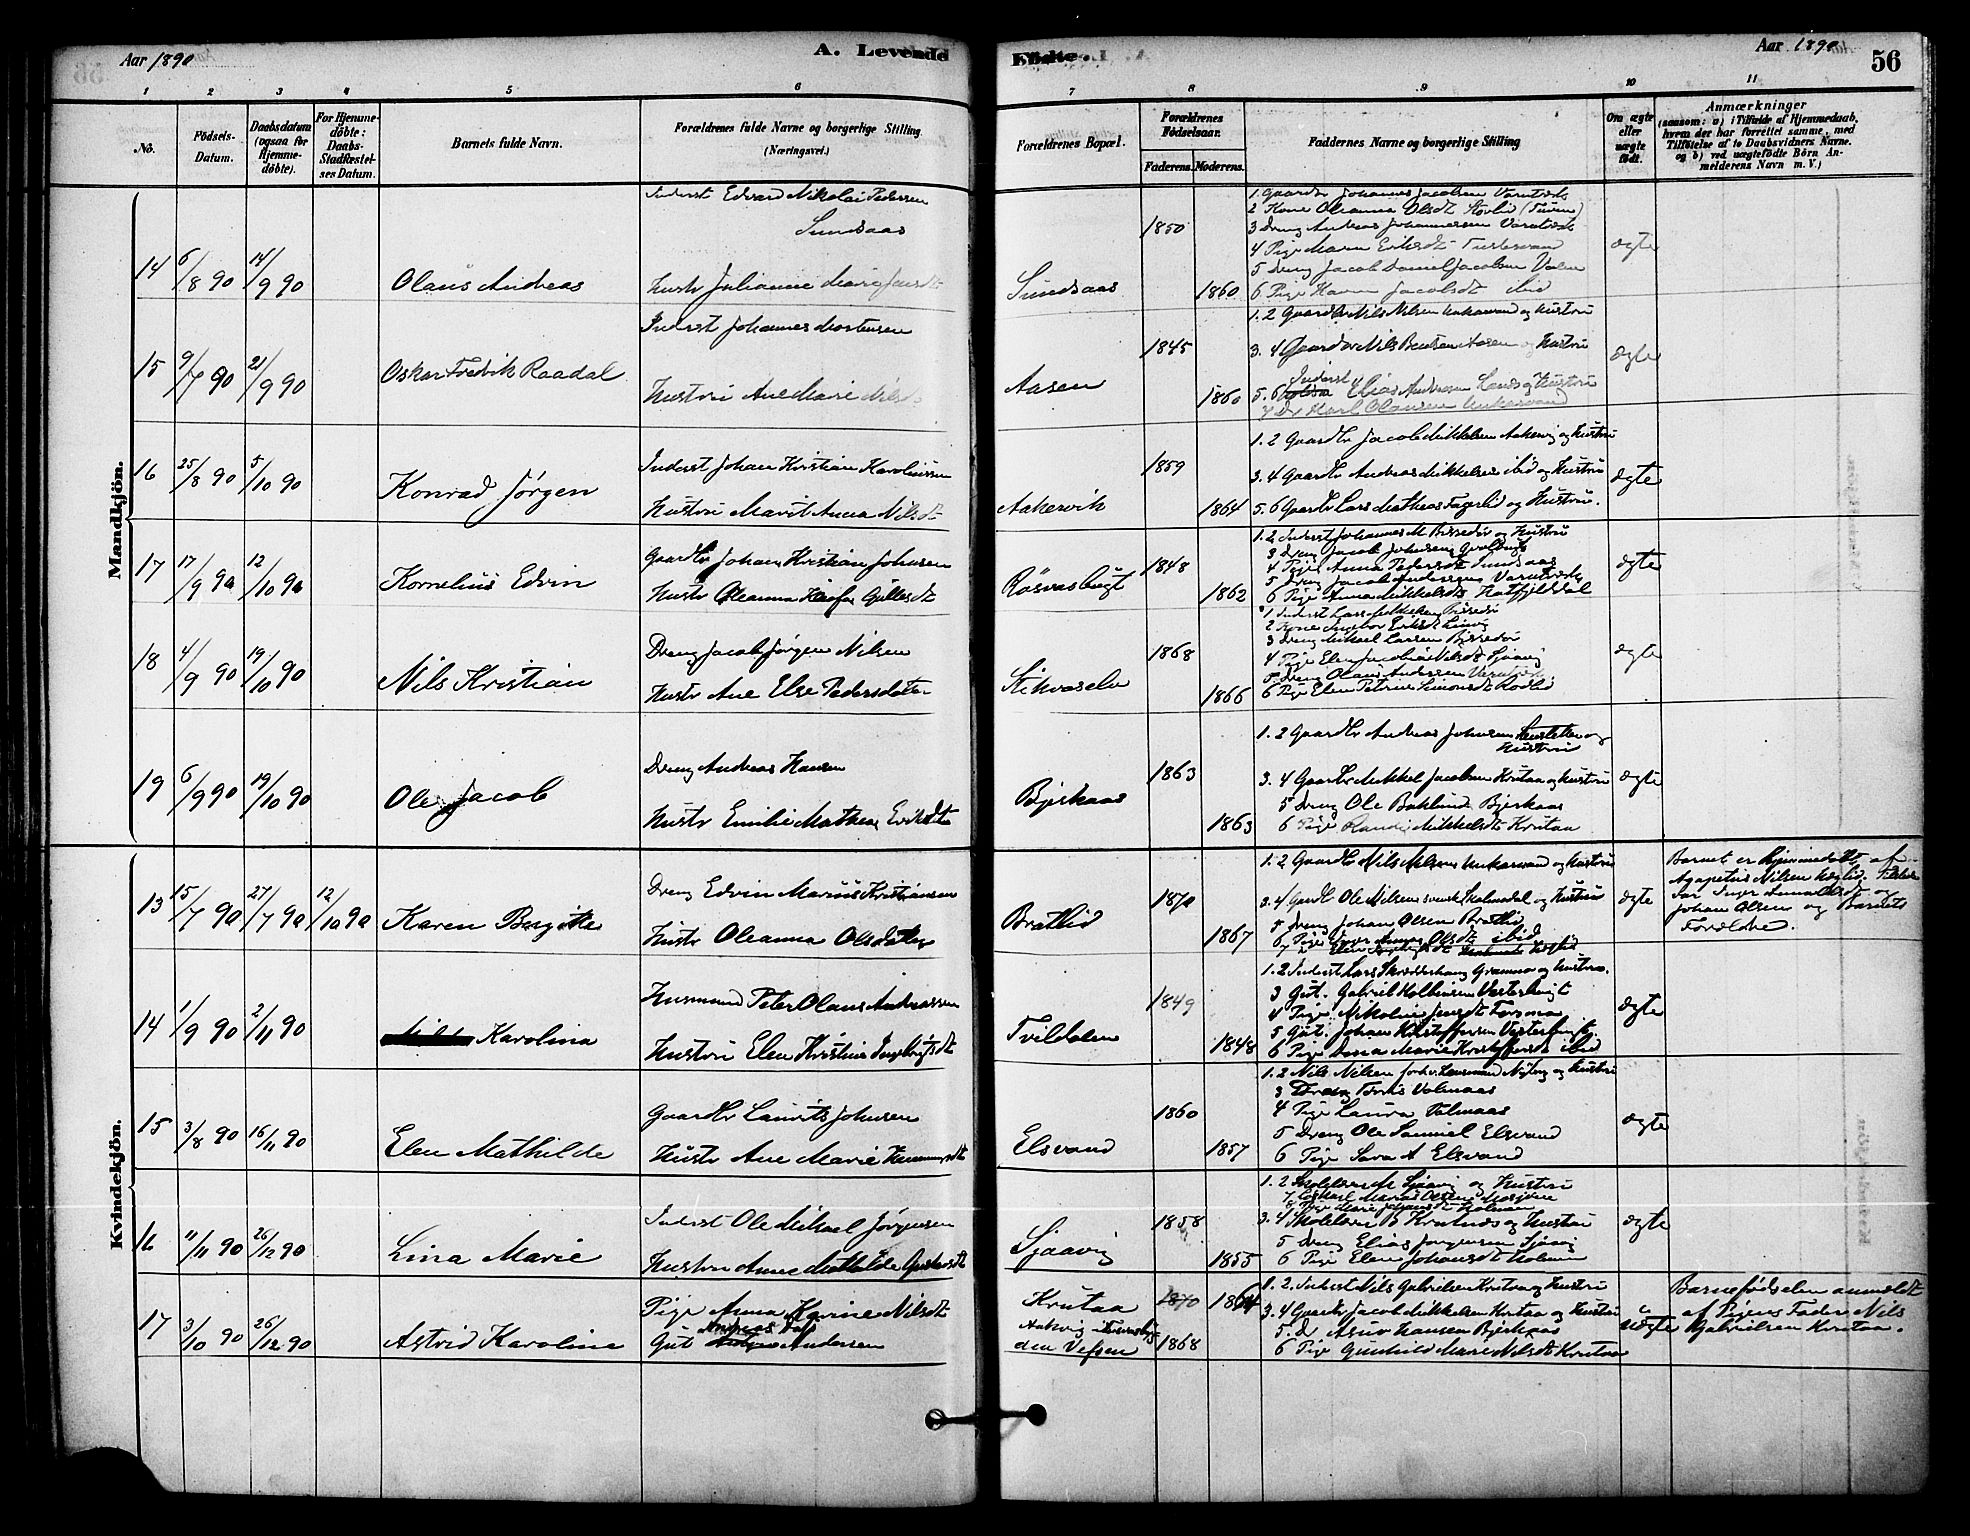 Aar 1890
A. Levende
Fødte.
Aar 1890
56
1 2 3 4 5 6 7 8 9 10 11
No.
Fødsels-
Datum.
Daabsdatum
(ogsaa for
Hjemme-
døbte).
For Hjemme-
døbte:
Daabs-
Stadfæstel-
ses Datum.
Barnets fulde Navn.
Forældrenes fulde Navne og borgerlige Stilling.
(Næringsvei.)
Forældrenes Bopæl.
Forældrenes
Fødselsaar.
Faderens. Moderens.
Faddernes Navne og borgerlige Stilling
Om ægte
eller
uægte
født.
Anmærkninger
(saasom: a) i Tilfælde af Hjemmedaab,
hvem der har forrettet samme, med
Tilføielse af to Daabsvidners Navne.
og b) ved uægtefødte Børn An-
melderens Navn m. V.)
Mandkjön.
14 6/8 90 14/9 90 Olaus Andreas
Inderst Edvard Nikolai Pedersen
Sundsaas
Hustr Julianne Marie Jensdt
Sundsaas 1850 1860
1. Gaardbr Johannes Jacobsen Varntræsk
2 Kone Oleanna Olsdt
3 Dreng Andreas Johannessen Varntræsk
4 Pige Maren Eriksdt
5 Dreng Jacob Daniel Jacobsen
6 Pige Jacobsdt ibid
ægte
15 9/7 90 21/9 90 Oskar Fredrik Raadal
Inderst Johannes Mortensen
Hustru Ane Marie Nilsdt
Aasen 1845 1860
1. 2 Gaardbr Nils Nilsen Unkervand og Hustru
3. 4 Gaardbr Nils Bentsen Aasen og Hustru
5. 6 Inderst Elias Andersen og Hustru
7 Dr Karl Olausen Unkervand
ægte
16 25/8 90 5/10 90 Konrad Jörgen
Inderst Johan Kristian Karoliussen
Hustru Marit Anna Nilsdt
Aakervik 1859 1864
1. 2 Gaardbr Jacob Mikkelsen Aakervig og Hustru
3. 4 Gaardbr Andreas Mikkelsen ibid og Hustru
5. 6 Gaardbr Lars Mathias Fagerlid og Hustru.
ægte
17 17/9 90 12/10 90 Kornelius Edvin
Gaardbr Johan Kristian Johnsen
Hustr Oleanna
Rösvasbugt 1848 1862
1. 2 Inderst Johannes M og Hustru
3 Dreng Jacob Johnsen
4 Pige Anna Pedersdt Sundsaas
5 Dreng Jacob Andersen Varntræsk
6 Pige Anna Mikkelsdt Hatfjelddal
ægte
18 4/9 90 19/10 90 Nils Kristian
Dreng Jacob Jørgen Nilsen
Hustr Ane Else Pedersdatter
Stikvaselv 1868 1866
1 Inderst Lars Mikkelsen
2 Kone Eriksdt
3 Dreng Mikael Larsen
4 Pige Elen Jacobine Nilsdt Sjaavig
5 Dreng Olaus Andersen
6 Pige Elen Petrine Simonsdt
ægte
19 6/9 90 19/10 90 Ole Jacob
Dreng Andreas Hansen
Hustr Emilie Mathea Eriksdtr
Bjerkaas 1863 1863
1. 2 Gaardbr Andreas Johnsen og
Hustru
3. 4 Gaardbr Mikkel Jacobsen Krutaa og Hustru
5 Dreng Ole Baklund Bjerkaas
6 Pige Randi Mikkelsdt Krutaa
ægte
Kvindekjön.
13 15/7 90 27/7 90 12/10 90 Karen Bergitte
Dreng Edvin Marius Kristiansen
Hustr Oleanna Olsdatter
Brattlid 1870 1867
1. 2 Gaardbr Nils Nilsen Unkervand og Hustru
3. 4 Gaardbr Ole Nilsen svensk Skalmodal og Hustru
5 Dreng Johan Olsen Brattlid
6 Pige Inger Anna Olsdt ibid
ægte
Barnet er hjemmedøbt af
Agapetus Nilsen
Inger Anna Olsdt og
Johan Olsen og Barnets
Forældre.
14 1/9 90 2/11 90 Karolina
Husmand Peter Olaus Andreassen
Hustru Elen Kristine Ingebrigtsdt
Tvildalen 1849 1848
1. 2 Inderst Lars Skredderhaug Grannæs og Hustru.
3 Gut. Gabriel Vesterbugt
4 Pige Nikoline Jensdt Forsmo
5 Gut. Johan Kristoffersen Vesterbugt
6 Pige Marie Kristoffersdt ibid
ægte
15 3/8 90 16/11 90 Elen Mathilde
Gaardbr Laurits Johnsen
Hustr Ane Marie
Elsvand 1860 1857
1. 2 Nils Nilsen forhv. og Hustru
3 Dreng Tønis Volmaas
4 Pige Laura Volmaas
5 Dreng Ole Samuel Elsvand
6 Pige Sara A Elsvand
ægte
16 11/11 90 26/12 90 Lina Marie
Inderst Ole Mikael Jörgensen
Hustru Anne Mathilde
Sjaavig 1858 1855
1. 2 Skolelærer M Sjaavig og Hustru
3. 4 Skolelærer B Krutnæs og Hustru
5 Dreng Elias Jørgensen Sjaavig
6 Pige Elen Johansdt Holmen
ægte
17 3/10 90 26/12 90 Astrid Karolina
Pige Anna Karine Nilsdt
Gut Andreas Andersen
Krutaa
den Vefsen
1870 1864
1868
1. 2. Inderst Nils Gabrielsen Krutaa og Hustru
3. 4 Gaardbr Jacob Mikkelsen Krutaa og Hustru
5. D Hansen Bjerkaas
6 Pige Gunhild Marie Nilsdt Krutaa
uægte
Barnefødselen anmeldt
af Pigens Fader Nils
Gabrielsen Krutaa.